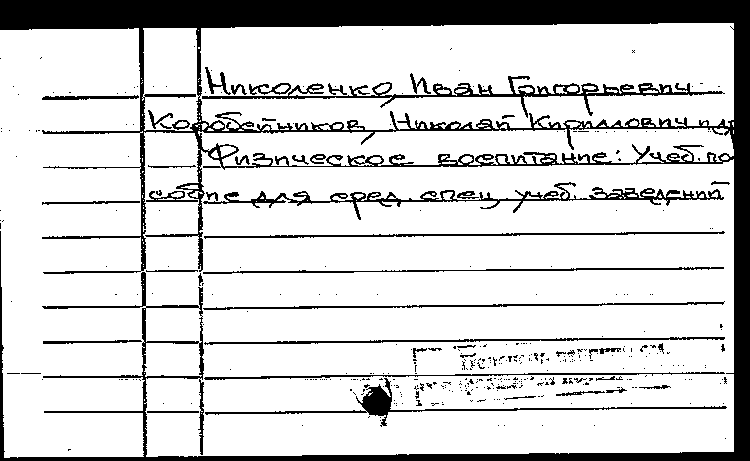 Николенко, Иван Григорьевич
Коробейников, Николай Кириллович и др
Физическое воспитание: Учеб. по
собие для сред. спец. учеб. заведений